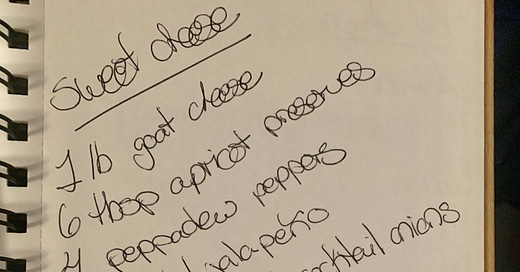 Sweet cheese
1 lb goat cheese
6 tbsp apricot preserves
4 peppadew peppers
jalapeño
cocktail onions